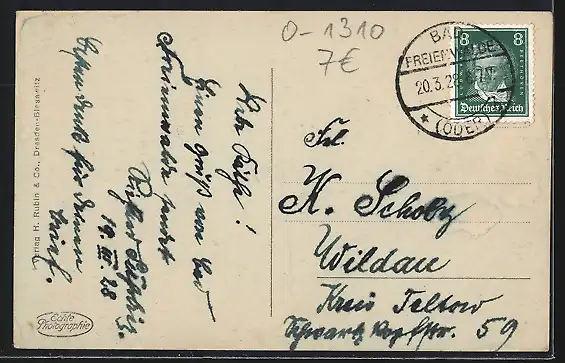 O-1310
7€
BAD
FREIENWALDE
20.3.28
(ODER)
8 8
BEETHOVEN
Deutsches Reich
Einen Gruß von Bad
Freienwalde sendet
19. III. 28
Besten Dank für Deinen
Brief.
Frl.
K. Scholz
Wildau
Kreis Teltow
Schwartzkopffstr. 59
Verlag H. Rubin & Co., Dresden-Blasewitz
Echte
Photographie